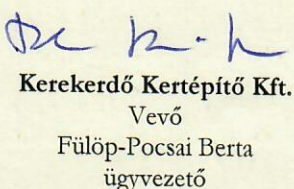 Kerekerdő Kertépítő Kft.
Vevő
Fülöp-Pocsai Berta
ügyvezető